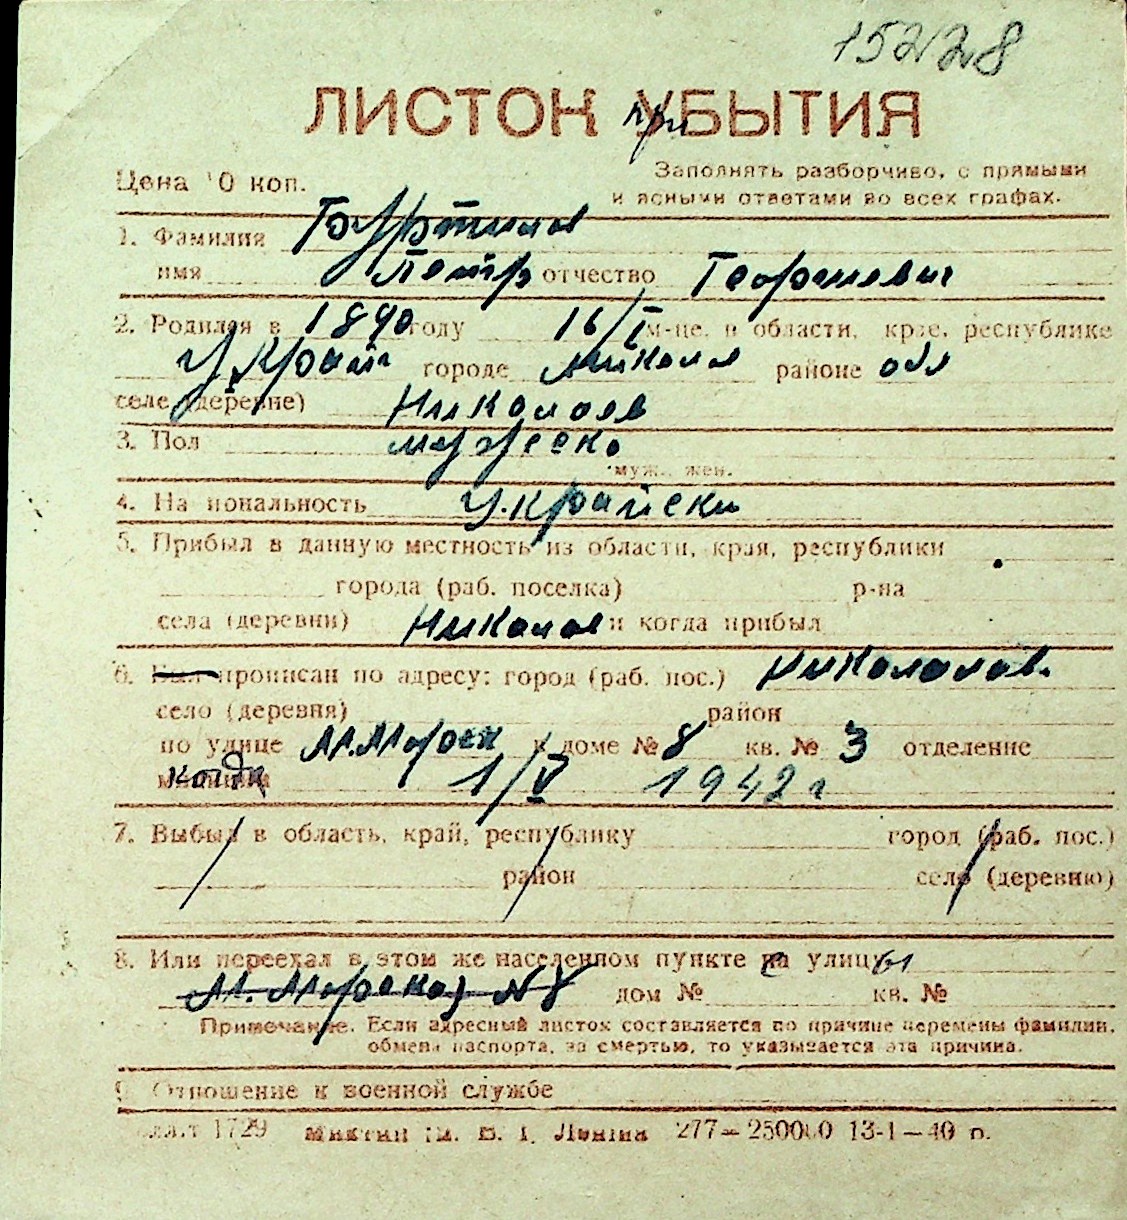 15228
ЛИСТОК при УБЫТИЯ
Цена 10 коп.
Заполнять разборчиво, с прямыми
и ясными ответами во всех графах.
1. Фамилия
имя Петр отчество Георгиевич
2. Родился в 1890 году 16/I м-це, в области, крае, республике
Украин городе Никола районе обл
селе (деревне) Николаев
3. Пол мужеско
муж., жен.
4. Национальность Украйнски
5. Прибыл в данную местность из области, края, республики
города (раб. поселка) р-на
села (деревни) Николаев и когда прибыл
6. Был прописан по адресу: город (раб. пос.) Николаев
село (деревня) район
по улице М.Морск в доме № 8 кв. № 3 отделение
когда 1/V 1942 г
7. Выбыл в область, край, республику город (раб. пос.)
район село (деревню)
8. Или переехал в этом же населенном пункте с улицы
М. Морская № 8 дом № кв. №
Примечание. Если адресный листок составляется по причине перемены фамилии,
обмена паспорта, за смертью, то указывается эта причина.
9. Отношение к военной службе
1729 им. В. І. Леніна 277—250000 13-1—40 р.